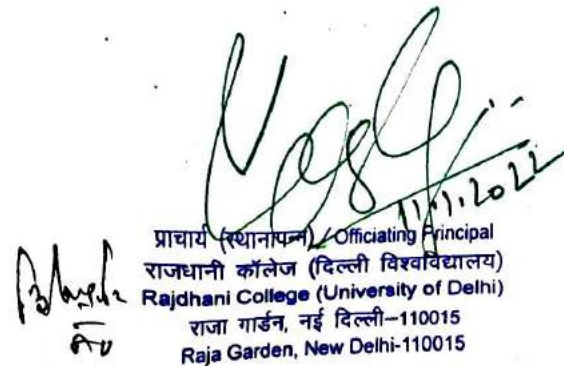 11.1.2022
प्राचार्य (स्थानापन्न) / Officiating Principal
राजधानी कॉलेज (दिल्ली विश्वविद्यालय)
Rajdhani College (University of Delhi)
राजा गार्डन, नई दिल्ली-110015
Raja Garden, New Delhi-110015